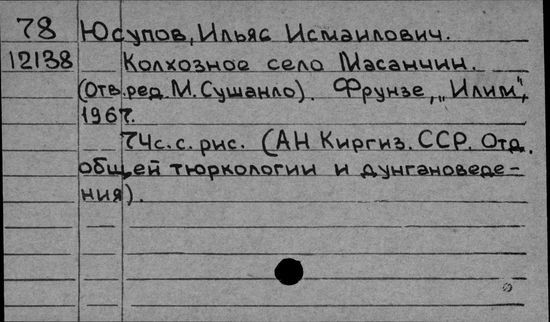 78 Юсупов, Ильяс Исмаилович.
12138 Колхозное село Масанчин.
(Отв. ред. М. Сушанло). Фрунзе, „Илим",
1967.
74с. с. рис. (АН Киргиз. ССР. Отд.
общей тюркологии и дунгановеде-
ния).